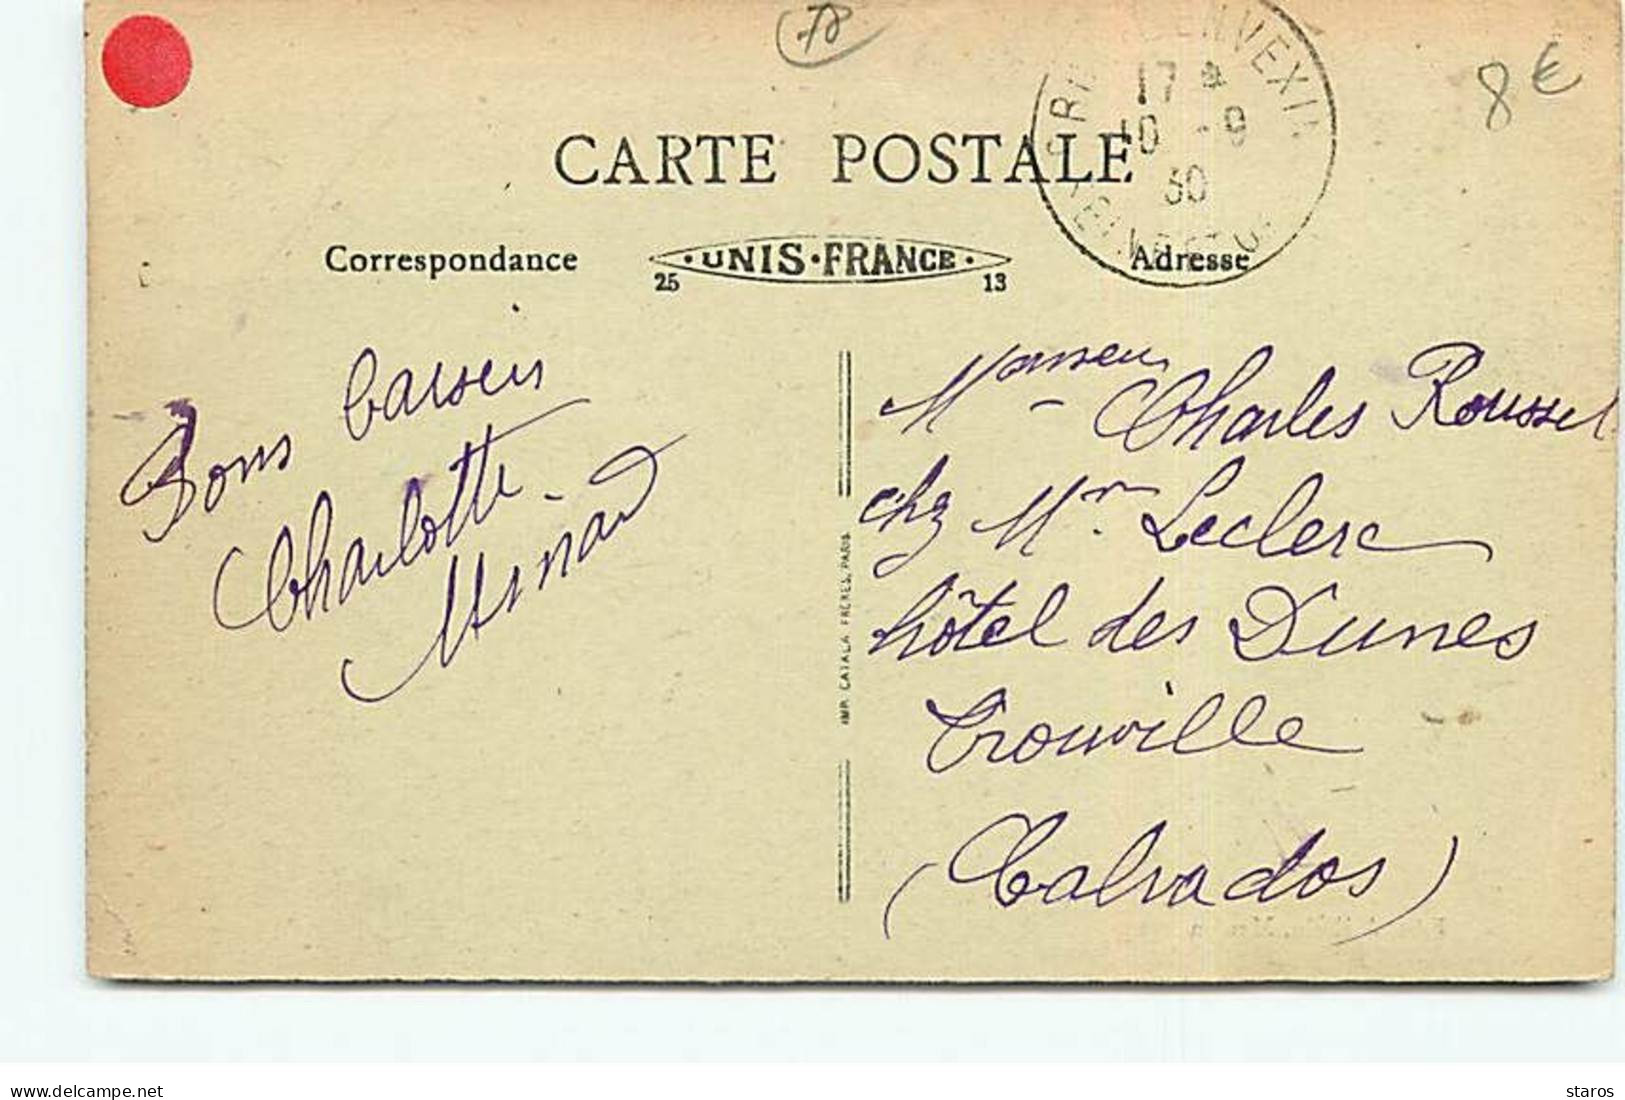 78
8€
17 *
10 - 9
30
CARTE POSTALE
Correspondance
UNIS·FRANCE
Adresse
25
13
Bons baisers
Charlotte
Monsieur
Charles Roussel
chez Mr. Leclerc
hôtel des Dunes
Trouville
(Calvados)
IMP. CATALA FRÈRES, PARIS
delcampe.net
staros